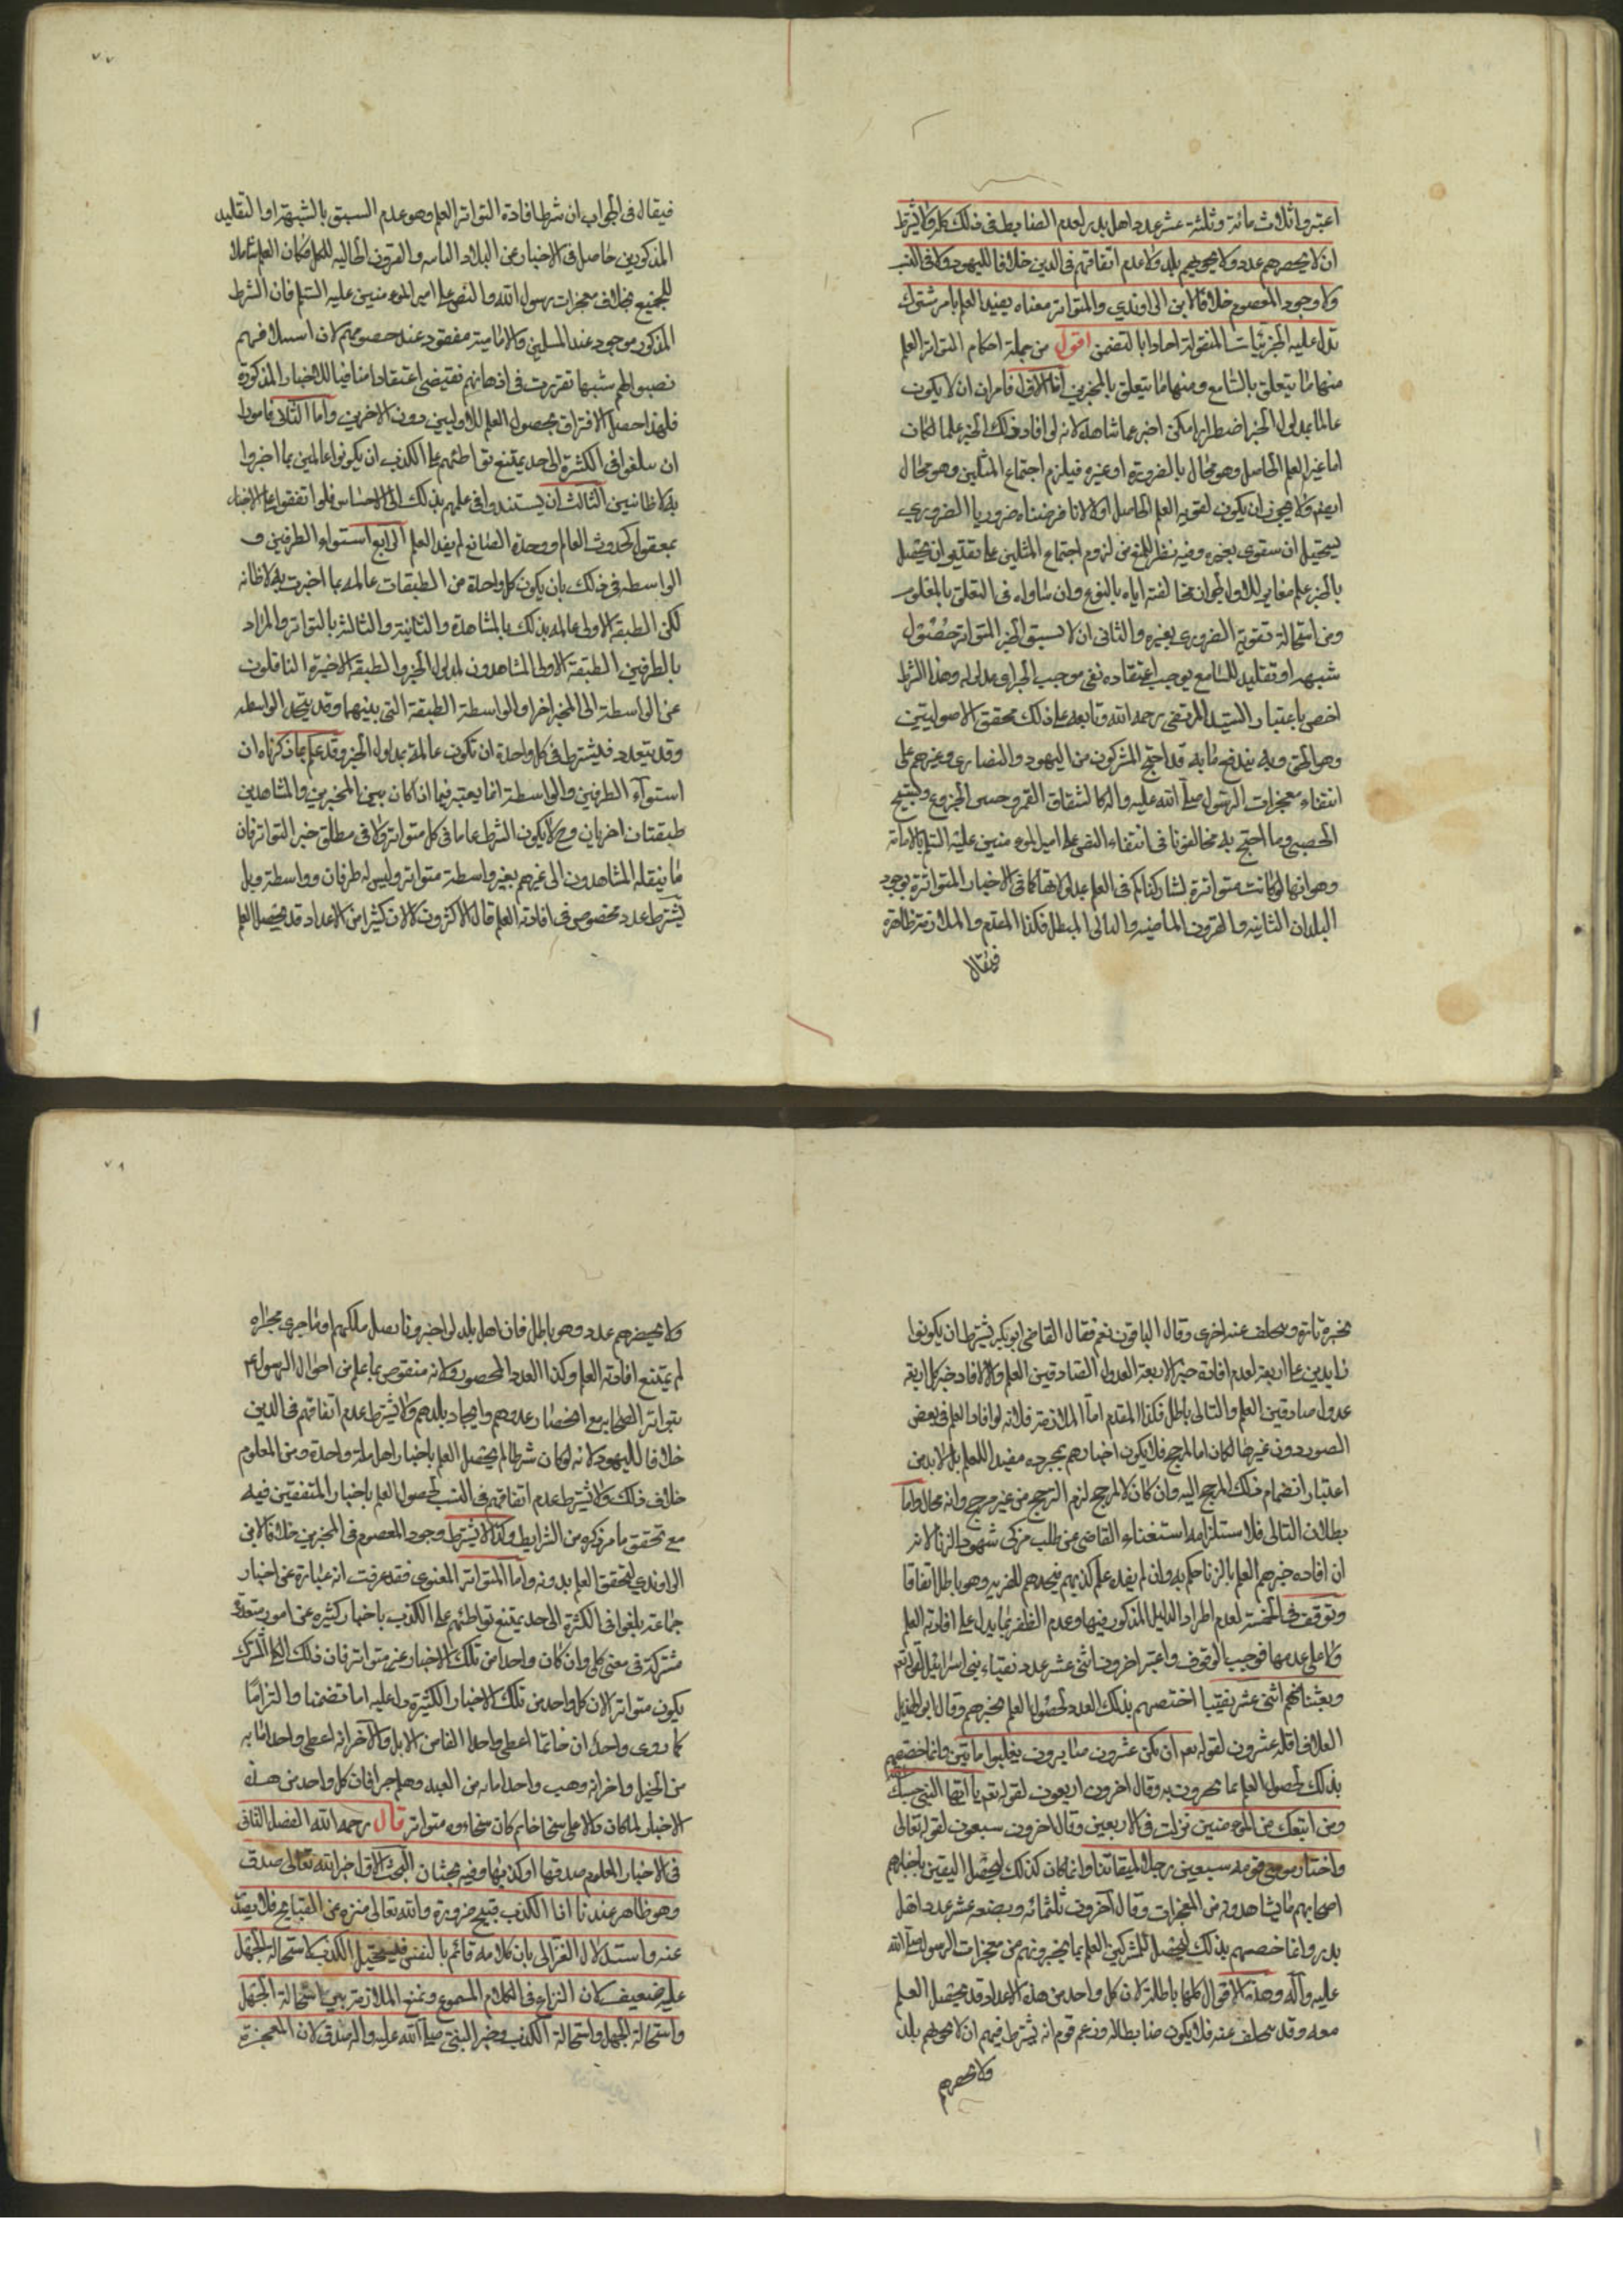 اعتبروا ثلاث مائة وثلثة عشر عدد اهل بدر لعدم الضابط فى ذلك كله ولا يشترط
ان لا يحصرهم عدد ولا يحويهم بلد ولا عدم اتفاقهم فى الدين خلافا لليهود ولا فى النسب
ولا وجود المعصوم خلافا لابن الراوندي والمتواتر معناه يفيد العلم بامر مشترك
تدل عليه الجزئيات المنقولة احادا بالتضمن اقول من جملة احكام التواتر العلم
منها ما يتعلق بالسامع ومنها ما يتعلق بالمخبرين اما الاول فامران ان لا يكون
عالما بمدلول الخبر اضطرارا كمن اخبر عما شاهده لانه لو افاد ذلك الخبر علما لكان
اما عين العلم الحاصل وهو محال بالضرورة او غيره فيلزم اجتماع المثلين وهو محال
ايضا ولا يجوز ان يكون لقوية العلم الحاصل اولا لانا فرضناه ضروريا الضرورى
يستحيل ان يتقوى بغيره وفيه نظر للمنع من لزوم اجتماع المثلين على تقدير ان يحصل
بالخبر علم مغاير للاول لجواز مخالفته اياه بالنوع وان ساواه فى التعلق بالمعلوم
ومن استحالة تقوية الضرورى بغيره والثانى ان لا يسبق الخبر المتواتر حصول
شبهة او تقليد للسامع يوجب اعتقاده نفى موجب الخبر اى مدلوله وهذا الشرط
اختص باعتباره السيد المرتضى رحمه الله وتابعه على ذلك محققوا الاصوليين
وهو الحق وبه يندفع ما به قد احتج المشركون من اليهود والنصارى وغيرهم على
انتفاء معجزات الرسول صلى الله عليه واله كانشقاق القمر وحنين الجزوع وتسبيح
الحصى وما احتج به مخالفونا فى انتفاء النص على امير المومنين عليه السلم بالامامة
وهو انها لو كانت متواترة لشاركناكم فى العلم بمدلولاتها كما فى الاخبار المتواترة بوجود
البلدان النائيه والقرون الماضيه والتالى باطل فكذا المقدم والملازمة ظاهرة
فيقال
فيقال فى الجواب ان شرط افادة التواتر العلم وهو عدم السبق بالشبهة او التقليد
المذكورين حاصل فى الاخبار عن البلاد النائيه والقرون الخاليه للكل فكان العلم شاملا
للجميع بخلاف معجزات رسول الله والنص على امير المومنين عليه السلم فان الشرط
المذكور موجود عند المسلمين والامامية مفقود عند خصومهم لان اسلافهم
نصبوا لهم شبها تقررت فى اذهانهم تقتضى اعتقادا منافيا للاخبار المذكورة
فلهذا حصل الافتراق بحصول العلم للاولين دون الاخرين واما الثانى فامور ا
ان يبلغوا فى الكثرة الى حد يمتنع تواطئهم على الكذب ان يكونوا عالمين بما اخبروا
به لا ظانين الثالث ان يستندوا فى علمهم بذلك الى الاحساس فلو اتفقوا على الاخبار
بمعقول كحدوث العالم ووحدة الصانع لم يفد العلم الرابع استواء الطرفين و
الواسطه فى ذلك بان يكون كل واحدة من الطبقات عالمه بما اخبرت به لا ظانه
لكن الطبقة الاولى عالمه بذلك بالمشاهدة والثانية والثالثة بالتواتر والمراد
بالطرفين الطبقة الاولى المشاهدون لمدلول الخبر والطبقة الاخيرة الناقلون
عن الواسطة الى المخبر اخرا والواسطة الطبقة التى بينهما وقد يتحد الواسطه
وقد يتعدد فيشترط فى كل واحدة ان تكون عالمة بمدلول الخبر وقد علم بما ذكرناه ان
استواء الطرفين والواسطة انما يعتبر فيما اذا كان بين المخبرين والمشاهدين
طبقتان اخريان وح لا يكون الشرط عاما فى كل متواتر ولا فى مطلق خبر التواتر فان
ما ينقله المشاهدون الى غيرهم بغير واسطة متواتر وليس له طرفان وواسطة وهل
يشترط عدد مخصوص فى افادته العلم قال الاكثرون لا لان كثيرا من الاعداد قد يحصل العلم
بخبره تارة ويتخلف عنه اخرى وقال الباقون نعم فقال القاضى ابو بكر يشترط ان يكونوا
زايدين على اربعة لعدم افادة خبر الاربعة العدول الصادقين العلم والا لافاد خبر كل اربعه
عدول صادقين العلم والتالى باطل فكذا المقدم اما الملازمة فلانه لو افاد العلم فى بعض
الصور دون غيرها لكان اما لمرجح فلا يكون اخبارهم بمجرده مفيدا للعلم بل لا بد من
اعتبار انضمام ذلك المرجح اليه وان كان لا لمرجح لزم الترجح من غير مرجح وانه محال واما
بطلان التالى فلاستلزامه استغناء القاضى عن طلب مزكى شهود الزنا لانه
ان افاده خبرهم العلم بالزنا حكم به وان لم يفده علم كذبهم فيحدهم للفريه وهو باطل اتفاقا
وتوقف فى الخمسة لعدم اطراد الدليل المذكور فيها وعدم الظفر بما يدل على افادته العلم
ولا على عدمها فوجب الوقوف واعتبر اخرون اثنى عشر عدد نقباء بنى اسرائيل لقوله تعم
وبعثنا منهم اثنى عشر نقيبا اختصهم بذلك العدد لحصول العلم بخبرهم وقال ابو الهذيل
العلاف اقله عشرون لقوله تعم ان يكن عشرون صابرون يغلبوا ماتين وانما خصهم
بذلك لحصول العلم بما يخبرون به وقال اخرون اربعون لقوله تعم يا ايها النبى حسبك
ومن اتبعك من المومنين نزلت فى الاربعين وقال اخرون سبعون لقوله تعالى
واختار موسى قومه سبعين رجلا لميقاتنا وانما كان كذلك ليحصل اليقين باخبارهم
اصحابهم ما يشاهدونه من المعجزات وقال آخرون ثلثمائه وبضعه عشر عدد اهل
بدر وانما خصهم بذلك ليحصل للمشركين العلم بما يخبرونهم من معجزات الرسول صلى الله
عليه وآله وهذه الاقوال كلها باطلة لان كل واحد من هذه الاعداد قد يحصل العلم
معه وقد يتخلف عنه فلا يكون ضابطا له وزعم قوم انه يشترط فيهم ان لا يحويهم بلد
ولا يحصرهم
ولا يحصرهم عدد وهو باطل فان اهل بلد لو اخبرونا بقتل ملكهم او ما جرى مجراه
لم يمتنع افادته العلم وكذا العدد المحصور ولانه منقوص بما علم من احوال الرسول عم
بتواتر الصحابه مع انحصار عددهم واتحاد بلدهم ولا يشترط عدم اتفاقهم فى الدين
خلافا لليهود لانه لو كان شرطا لم يحصل العلم باخبار اهل ملة واحدة ومن المعلوم
خلاف ذلك ولا يشترط عدم اتفاقهم فى النسب لحصول العلم باخبار المتفقين فيه
مع تحقق ما مر ذكره من الشرايط وكذا لا يشترط وجود المعصوم فى المخبرين خلافا لابن
الراوندي لتحقق العلم بدونه واما المتواتر المعنوى فقد عرفت انه عبارة عن اخبار
جماعة بلغوا فى الكثرة الى حد يمتنع تواطئهم على الكذب باخبار كثيره عن امور متعددة
مشتركة فى معنى كلى وان كان واحدا من تلك الاخبار غير متواتر فان ذلك الكلى المشترك
يكون متواترا لان كل واحد من تلك الاخبار الكثيرة دل عليه اما تضمنا والتزاما
كما روى واحد ان حاتما اعطى واحدا الفا من الابل والآخر انه اعطى واحدا مايه
من الخيل واخر انه وهب واحدا مايه من العبيد وهلم جرا فان كل واحد من هذه
الاخبار لما كان دالا على سخا حاتم كان سخاوه متواتر قال رحمه الله الفصل الثانى
فى الاخبار المعلوم صدقها او كذبها وفيه بحثان البحث الاول خبر الله تعالى صدق
وهو ظاهر عندنا اذا الكذب قبيح ضرورة والله تعالى منزه عن القبايح فلا يصدر
عنه واستدلال الغزالى بان كلامه قائم بالنفس فيستحيل الكذب لاستحالة الجهل
عليه ضعيف لان النزاع فى الكلام المسموع ونمنع الملازمة بين استحالة الجهل
واستحالة الجهل واستحالة الكذب وخبر النبى صلى الله عليه واله صدق لان المعجزة